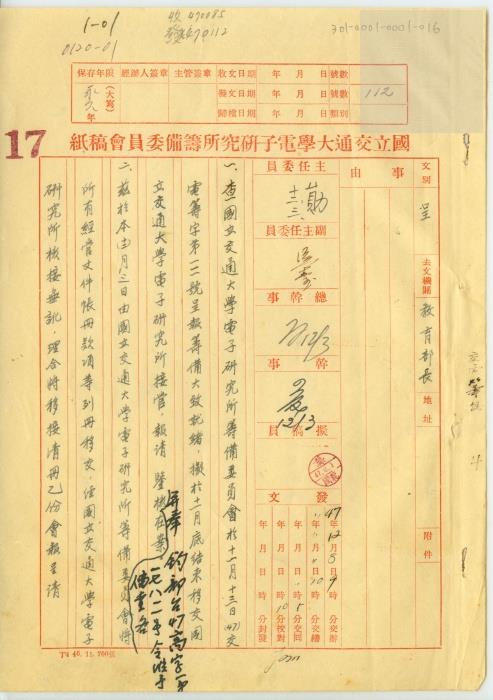 1-01
0120-01
收 470085
發 470112
301-0001-0001-016
保存年限 經辦人簽章 主管簽章 收文日期 年 月 日 號數
永久年 (大寫) 發文日期 年 月 日 號數 112
歸檔日期 年 月 日 類別
17
國立交通大學電子研究所籌備委員會稿紙
文別 呈 去文機關 教育部長 地址 附件
事由
主任委員
副主任委員
總幹事 12/3
幹事 12/3
擬稿員
發文
47年12月5日9時 分交辦
年 月 日10時 分交繕
年 月 日 時5分交閱
年 月 日 時10分校對
年 月 日 時 分封發
一、查 國立交通大學電子研究所籌備委員會於十一月十三日(47)交
電籌字第一一二號呈報籌備大致就緒,擬於十一月底結束移交國
立交通大學電子研究所接管,報請 鑒核在案
并奉 鈞部台47高字第
一七八二 號令准予
備查各
二、茲於本 月 日由國立交通大學電子研究所籌備委員會將
所有經管文件帳冊款項等列冊移交,經國立交通大學電子
研究所核接無訛,理合將移接清冊乙份會報呈請
T4 46. 11. 700張